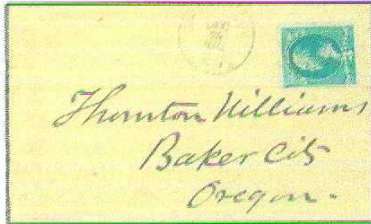 Thornton Williams
Baker City
Oregon.